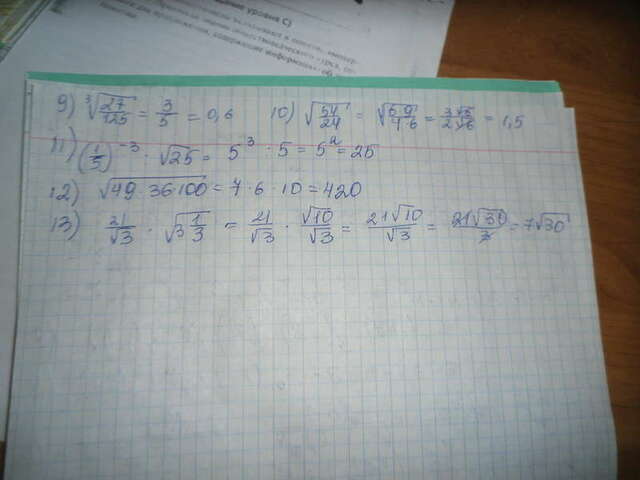 уровня С)
9) ∛(27/125) = 3/5 = 0,6 10) √(54/24) = √(6·9/4·6) = 3√6/2√6 = 1,5
11) (1/5)⁻³ · √25 = 5³ · 5 = 5² = 25
12) √(49·36·100) = 7 · 6 · 10 = 420
13) 21/√3 · √(3 1/3) = 21/√3 · √10/√3 = 21√10/√3 = 21√30/3 = 7√30